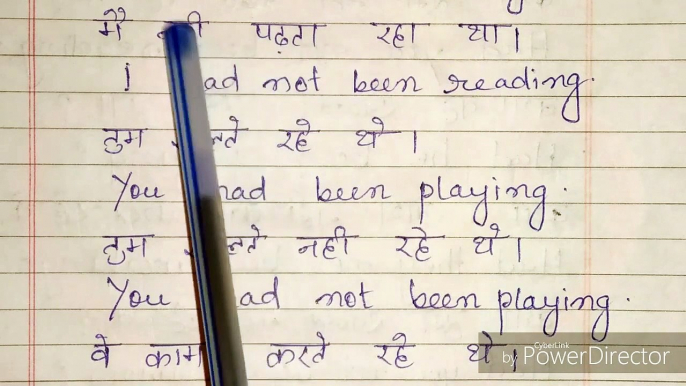 मैं पढ़ता रहा था।
I had not been reading.
तुम रहे थे।
You had been playing.
तुम नही रहे थे।
You had not been playing.
वे काम करते रहे थे।
CyberLink
by PowerDirector